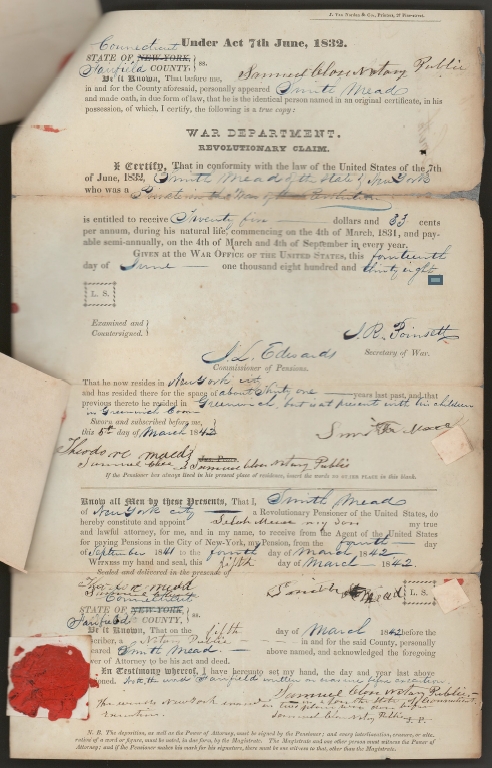 J. Van Norden & Co., Printers, 27 Pine-street.
Under Act 7th June, 1832.
Connecticut
STATE OF NEW-YORK, } ss.
Fairfield COUNTY,
Samuel Close Notary Public
Be it Known, That before me,
in and for the County aforesaid, personally appeared Smith Mead
and made oath, in due form of law, that he is the identical person named in an original certificate, in his
possession, of which, I certify, the following is a true copy:
WAR DEPARTMENT,
REVOLUTIONARY CLAIM.
I Certify, That in conformity with the law of the United States of the 7th
of June, 1832, Smith Mead of the State of New York
who was a in the War of the Revolution
is entitled to receive Twenty five dollars and 33 cents
per annum, during his natural life, commencing on the 4th of March, 1831, and pay-
able semi-annually, on the 4th of March and 4th of September in every year.
GIVEN at the WAR OFFICE OF THE UNITED STATES, this fourteenth
day of June one thousand eight hundred and thirty eight
L. S.
Examined and
Countersigned. }
J. R. Poinsett
Secretary of War.
J. L. Edwards
Commissioner of Pensions.
That he now resides in New York city
and has resided there for the space of about thirty one years last past, and that
previous thereto he resided in Greenwich, but is at present with his children
in Greenwich Conn
Sworn and subscribed before me,
this 5th day of March 1842
Smith Mead
Theodore Mead
Samuel Close Notary Public
If the Pensioner has always lived in his present place of residence, insert the words NO OTHER PLACE in this blank.
Know all Men by these Presents, That I, Smith Mead
of New York city a Revolutionary Pensioner of the United States, do
hereby constitute and appoint my son my true
and lawful attorney, for me, and in my name, to receive from the Agent of the United States
for paying Pensions in the City of New-York, my Pension, from the fourth day
of September 1841 to the fourth day of March 1842.
WITNESS my hand and seal, this fifth day of March 1842.
Sealed and delivered in the presence of
Mead
Smith Mead
L. S.
Connecticut
STATE OF NEW-YORK, } ss.
Fairfield COUNTY,
Be it Known, That on the fifth day of March 1842 before the
scriber, a Notary Public in and for the said County, personally
eared Smith Mead above named, and acknowledged the foregoing
wer of Attorney to be his act and deed.
In Testimony whereof, I have hereunto set my hand, the day and year last above
ioned. Note the word Fairfield written before execution.
Samuel Close Notary Public
in & for the State of Connecticut
The words New York erased in two places before
execution. Samuel Close Notary Public
N. B. The deposition, as well as the Power of Attorney, must be signed by the Pensioner; and every interlineation, erasure, or alte-
ration of a word or figure, must be noted, in due form, by the Magistrate. The Magistrate and one other person must witness the Power of
Attorney; and if the Pensioner makes his mark for his signature, there must be one witness to that, other than the Magistrate.